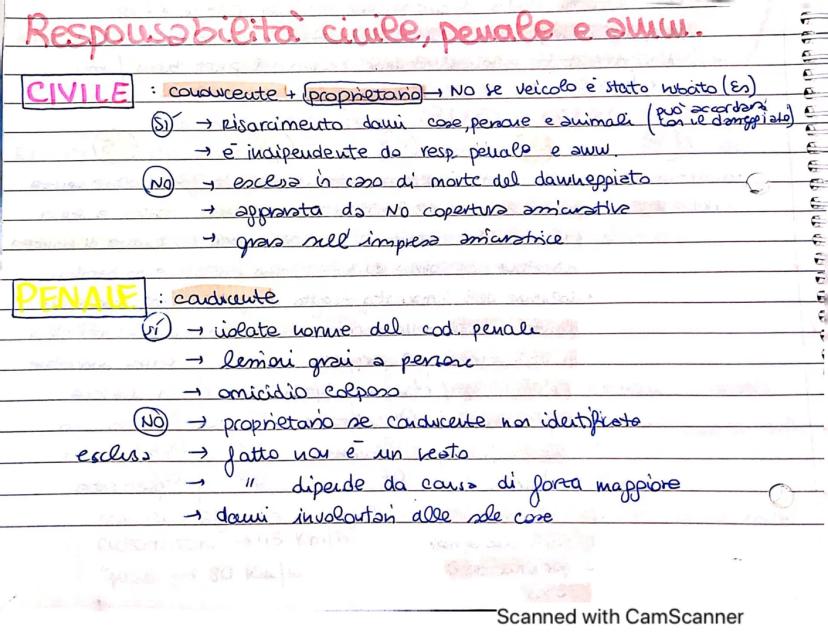 Responsabilità civile, penale e amm.
CIVILE : conducente + proprietario → No se veicolo è stato rubato (Es)
SÌ → Risarcimento danni cose, persone e animali (può accordarsi con il danneggiato)
→ è indipendente da resp. penale e amm.
NO → esclusa in caso di morte del danneggiato
→ aggravata da NO copertura assicurativa
→ grava sull'impresa assicuratrice
PENALE : conducente
SÍ → violate norme del cod. penali
→ lesioni gravi a persone
→ omicidio colposo
NO → proprietario se conducente non identificato
esclusa → fatto non è un reato
→ " dipende da causa di forza maggiore
→ danni involontari alle sole cose
Scanned with CamScanner